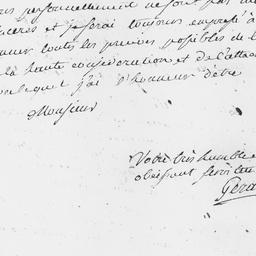 personnellement ne sont pas
et je serai toujours empressé à
toutes les preuves possibles de
la haute consideration et de l'atta
lequel j'ai l'honneur d'être
Monsieur
Votre très humble
obéissant servite
Gera